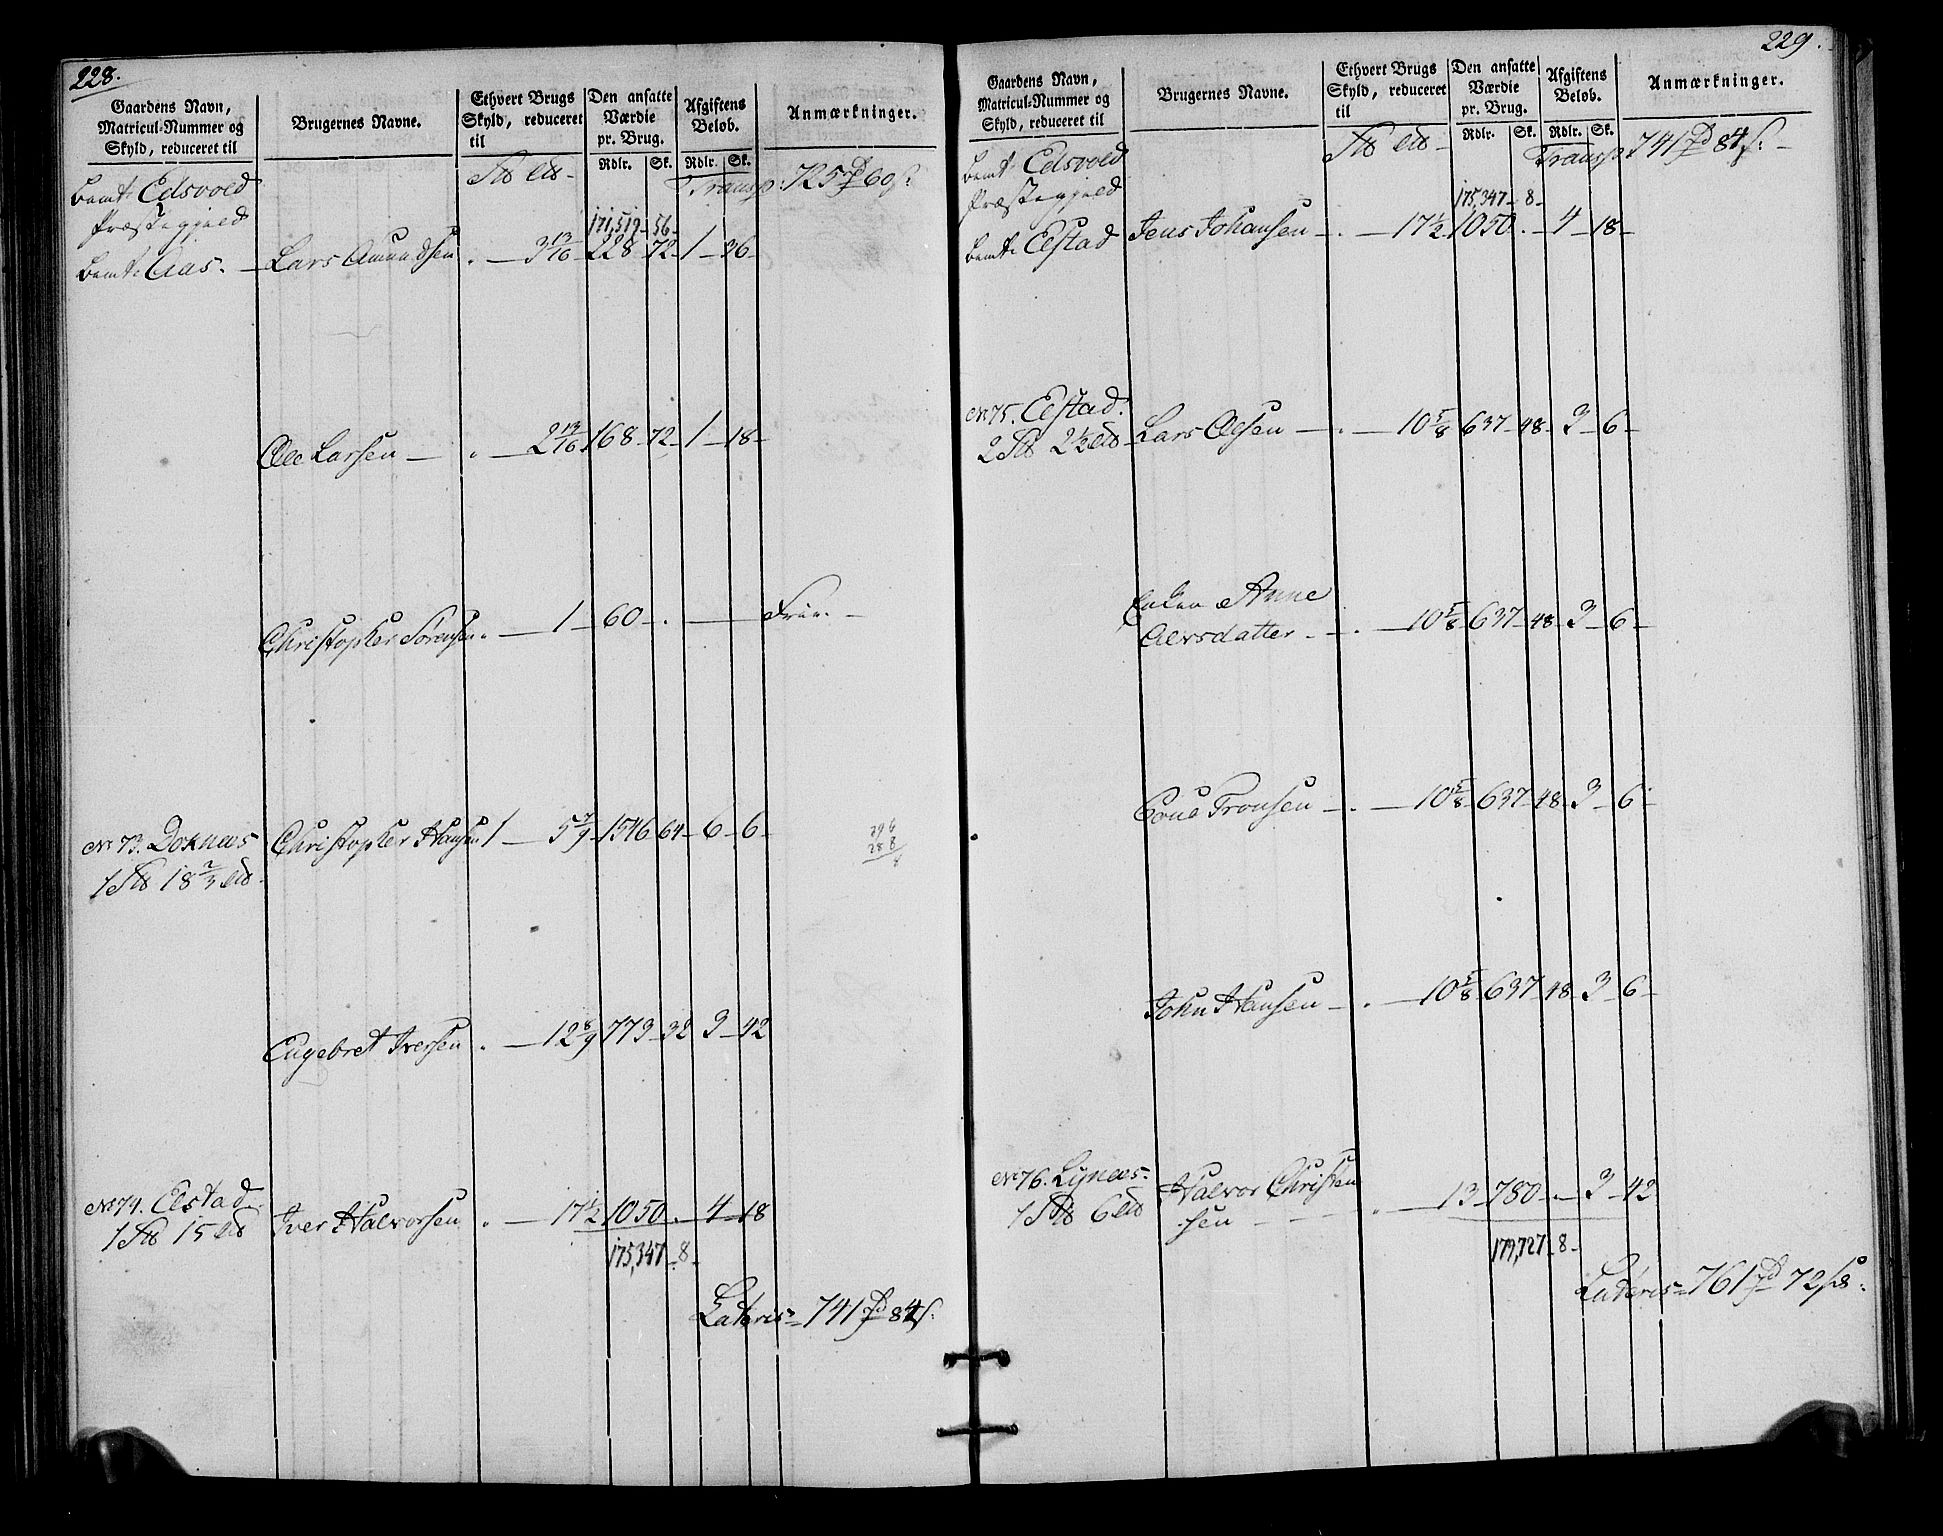 228.
Gaardens Navn, Matricul-Nummer og Skyld, reduceret til
Brugernes Navne.
Ethvert Brugs Skyld, reduceret til
Den ansatte Værdie pr. Brug.
Afgiftens Beløb.
Anmærkninger.
Rdlr. Sk. Rdlr. Sk.
Transp: 725 60
bemt: Edsvold
Præstegjeld
171,519 - 56 -
bemt: Aas. - Lars Amundsen . - 3 13/16 228 - 72 - 1 - 36 -
Ole Larsen - . - 2 13/16 168 - 72 - 1 - 18 -
Christopher Sørensen . - 1 - 60 - . - Frie. -
No 73. Doknæs Christopher Hansen 1 - 5 7/9 - 1546 - 64 - 6 - 6 -
1 18 2/3
296
288
8
Engebret Iversen . - 12 8/9 773 - 32 3 - 42
No 74. Elstad Iver Halvorsen . - 17 1/2 1050 . - 4 - 18
1 15
175,347 - 8 -
Lateris - 741 84
229.
Gaardens Navn, Matricul-Nummer og Skyld, reduceret til
Brugernes Navne.
Ethvert Brugs Skyld, reduceret til
Den ansatte Værdie pr. Brug.
Afgiftens Beløb.
Anmærkninger.
Rdlr. Sk. Rdlr. Sk.
Transp 741 84
bemt: Edsvold
Præstegjeld
175,347 - 8 -
bemt: Elstad Jens Johansen - . - 17 1/2 1050 . - 4 - 18 -
No 75. Elstad. Lars Olsen - . - 10 5/8 637 - 48 - 3 - 6 -
2 2 1/2
Enken Anne
Olersdatter - . - 10 5/8 637 - 48 - 3 - 6 -
Tronsen - . - 10 5/8 - 637 - 48 - 3 - 6 -
John Hansen - . - 10 5/8 637 48 - 3 - 6 -
No 76. Lynæs - Halvor Christen
1 6 sen - . - 13 - 780 - . - 3 - 42
179,727 - 8 -
Lateris - 761 72